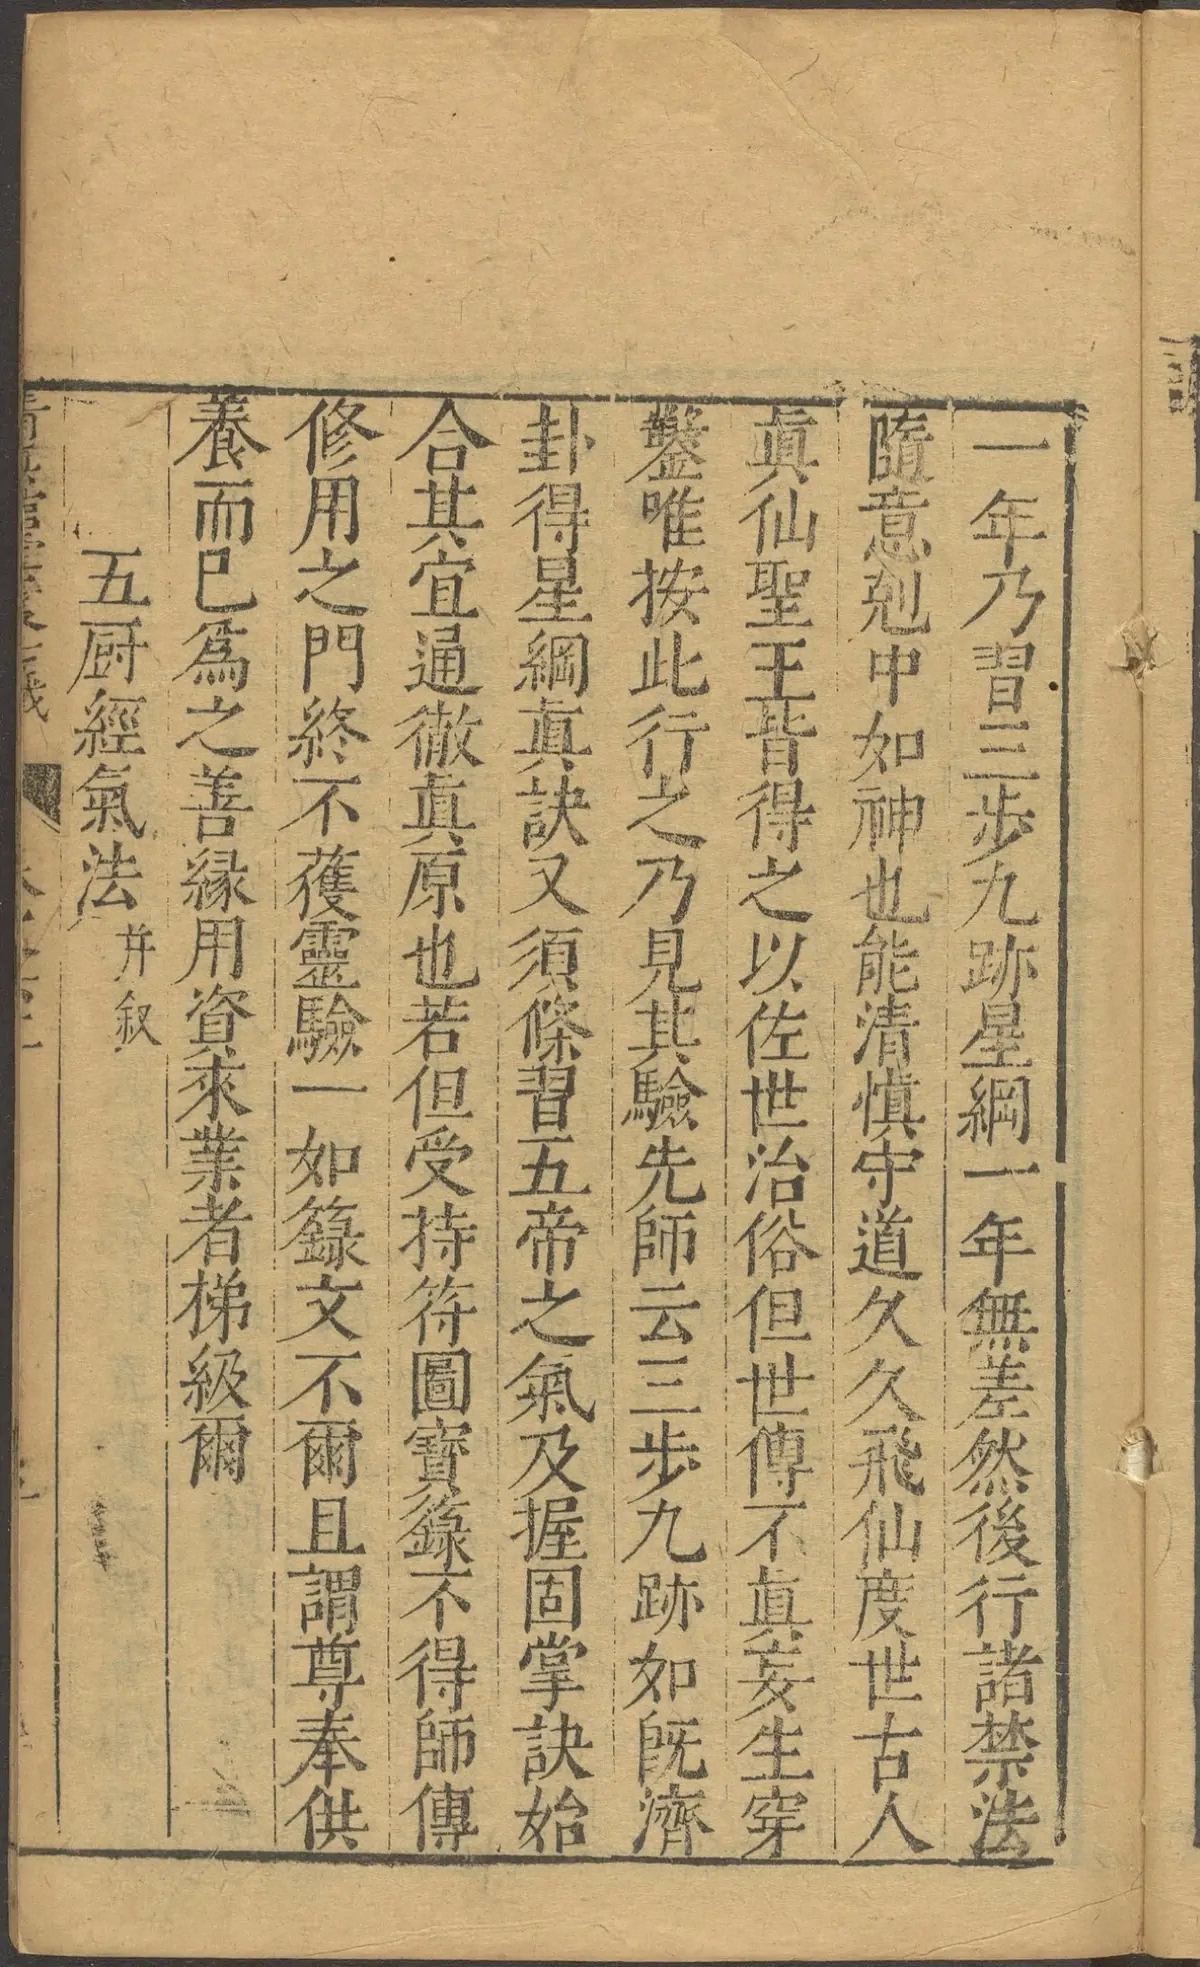 一年乃習三步九跡星綱一年無差然後行諸禁法
隨意剋中如神也能清慎守道久久飛仙度世古人
眞仙聖王皆得之以佐世治俗但世傳不眞妄生穿
鑿唯按此行之乃見其驗先師云三步九跡如旣濟
卦得星綱眞訣又須條習五帝之氣及握固掌訣始
合其宜通徹眞原也若但受持符圖寶籙不得師傳
修用之門終不獲靈驗一如籙文不爾且謂尊奉供
養而已爲之善緣用資來業者梯級爾
五厨經氣法并叙